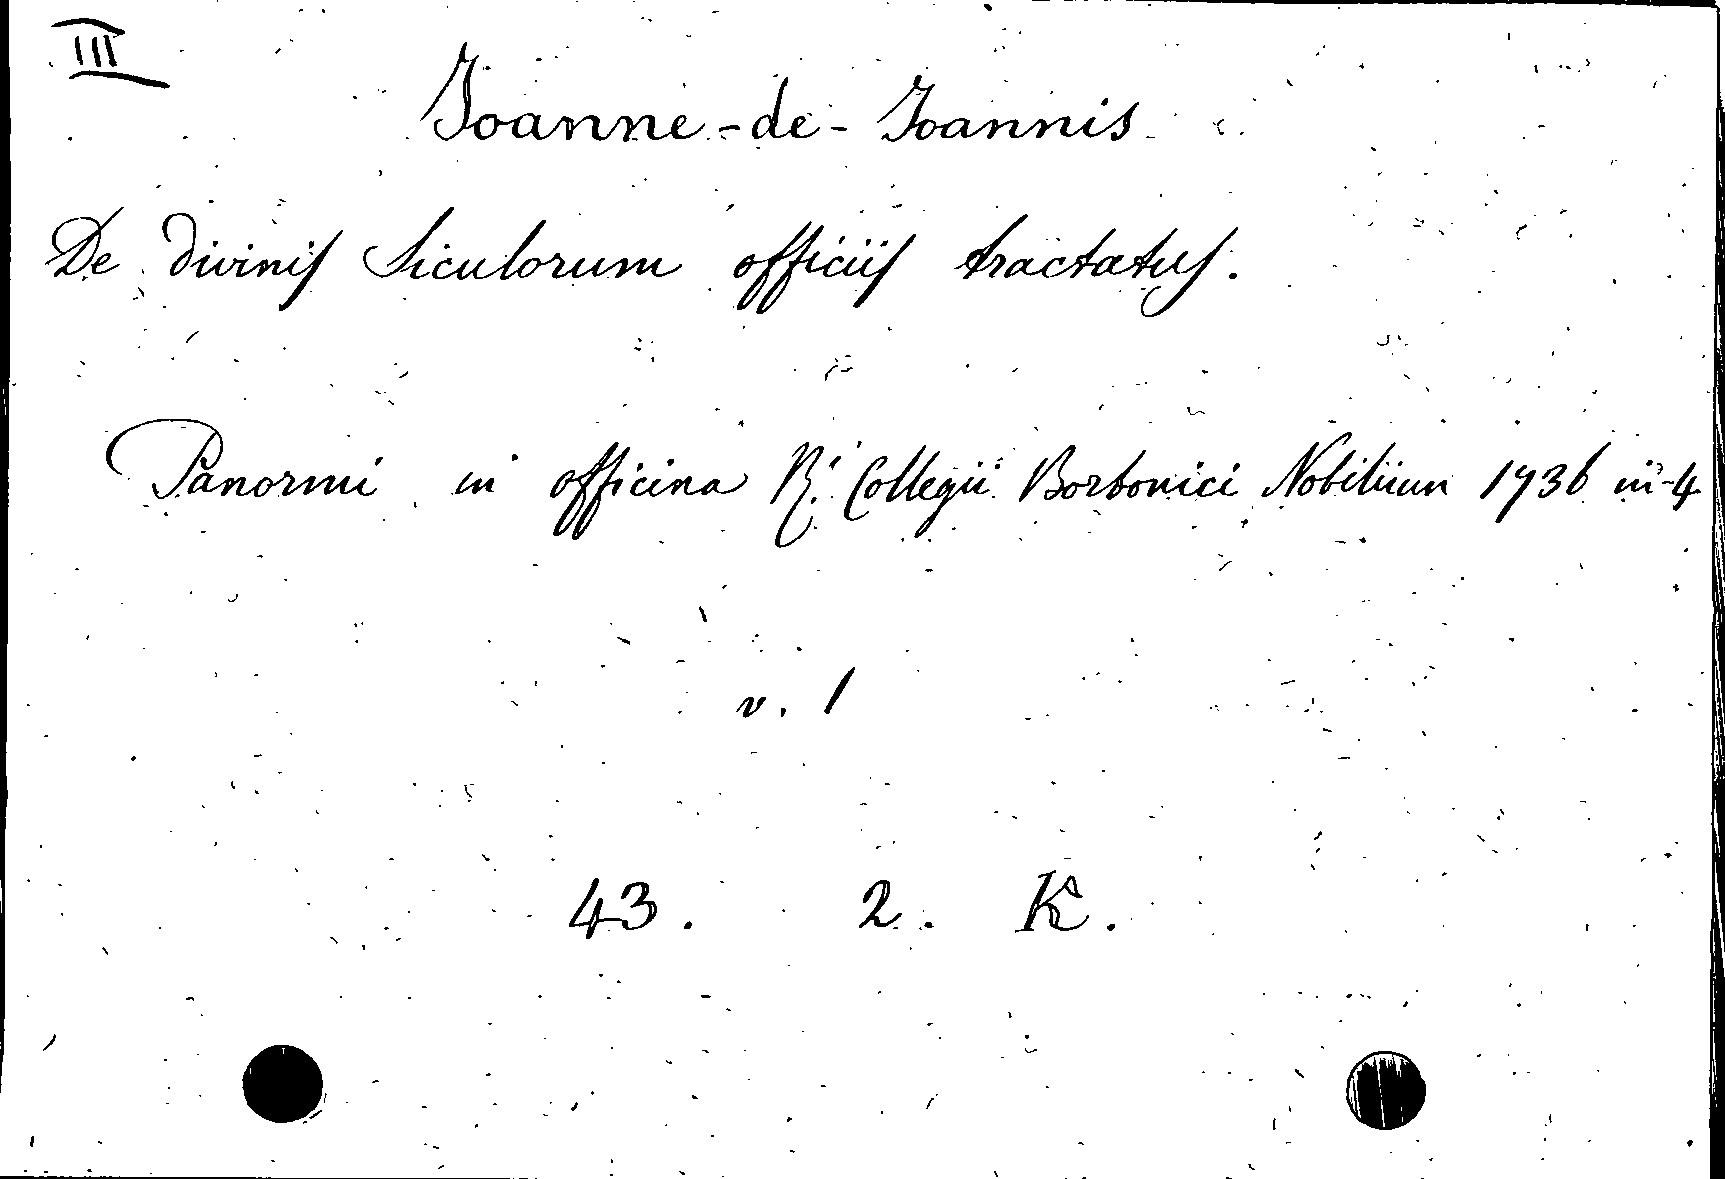 III
Joanne-de-Joannis
De divinis Siculorum officiis tractatus.
Panormi in officina R. Collegii Borbonici Nobilium 1736 in-4
v. 1
43. 2. K.